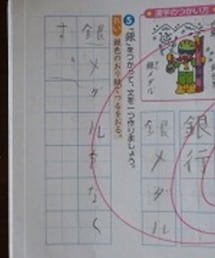 漢字のつかい方
銀メダル
銀行
銀メダル
5 「銀」をつかって、文を一つ作りましょう。
れい 銀色のおり紙でつるをおる。
銀メダルをなく